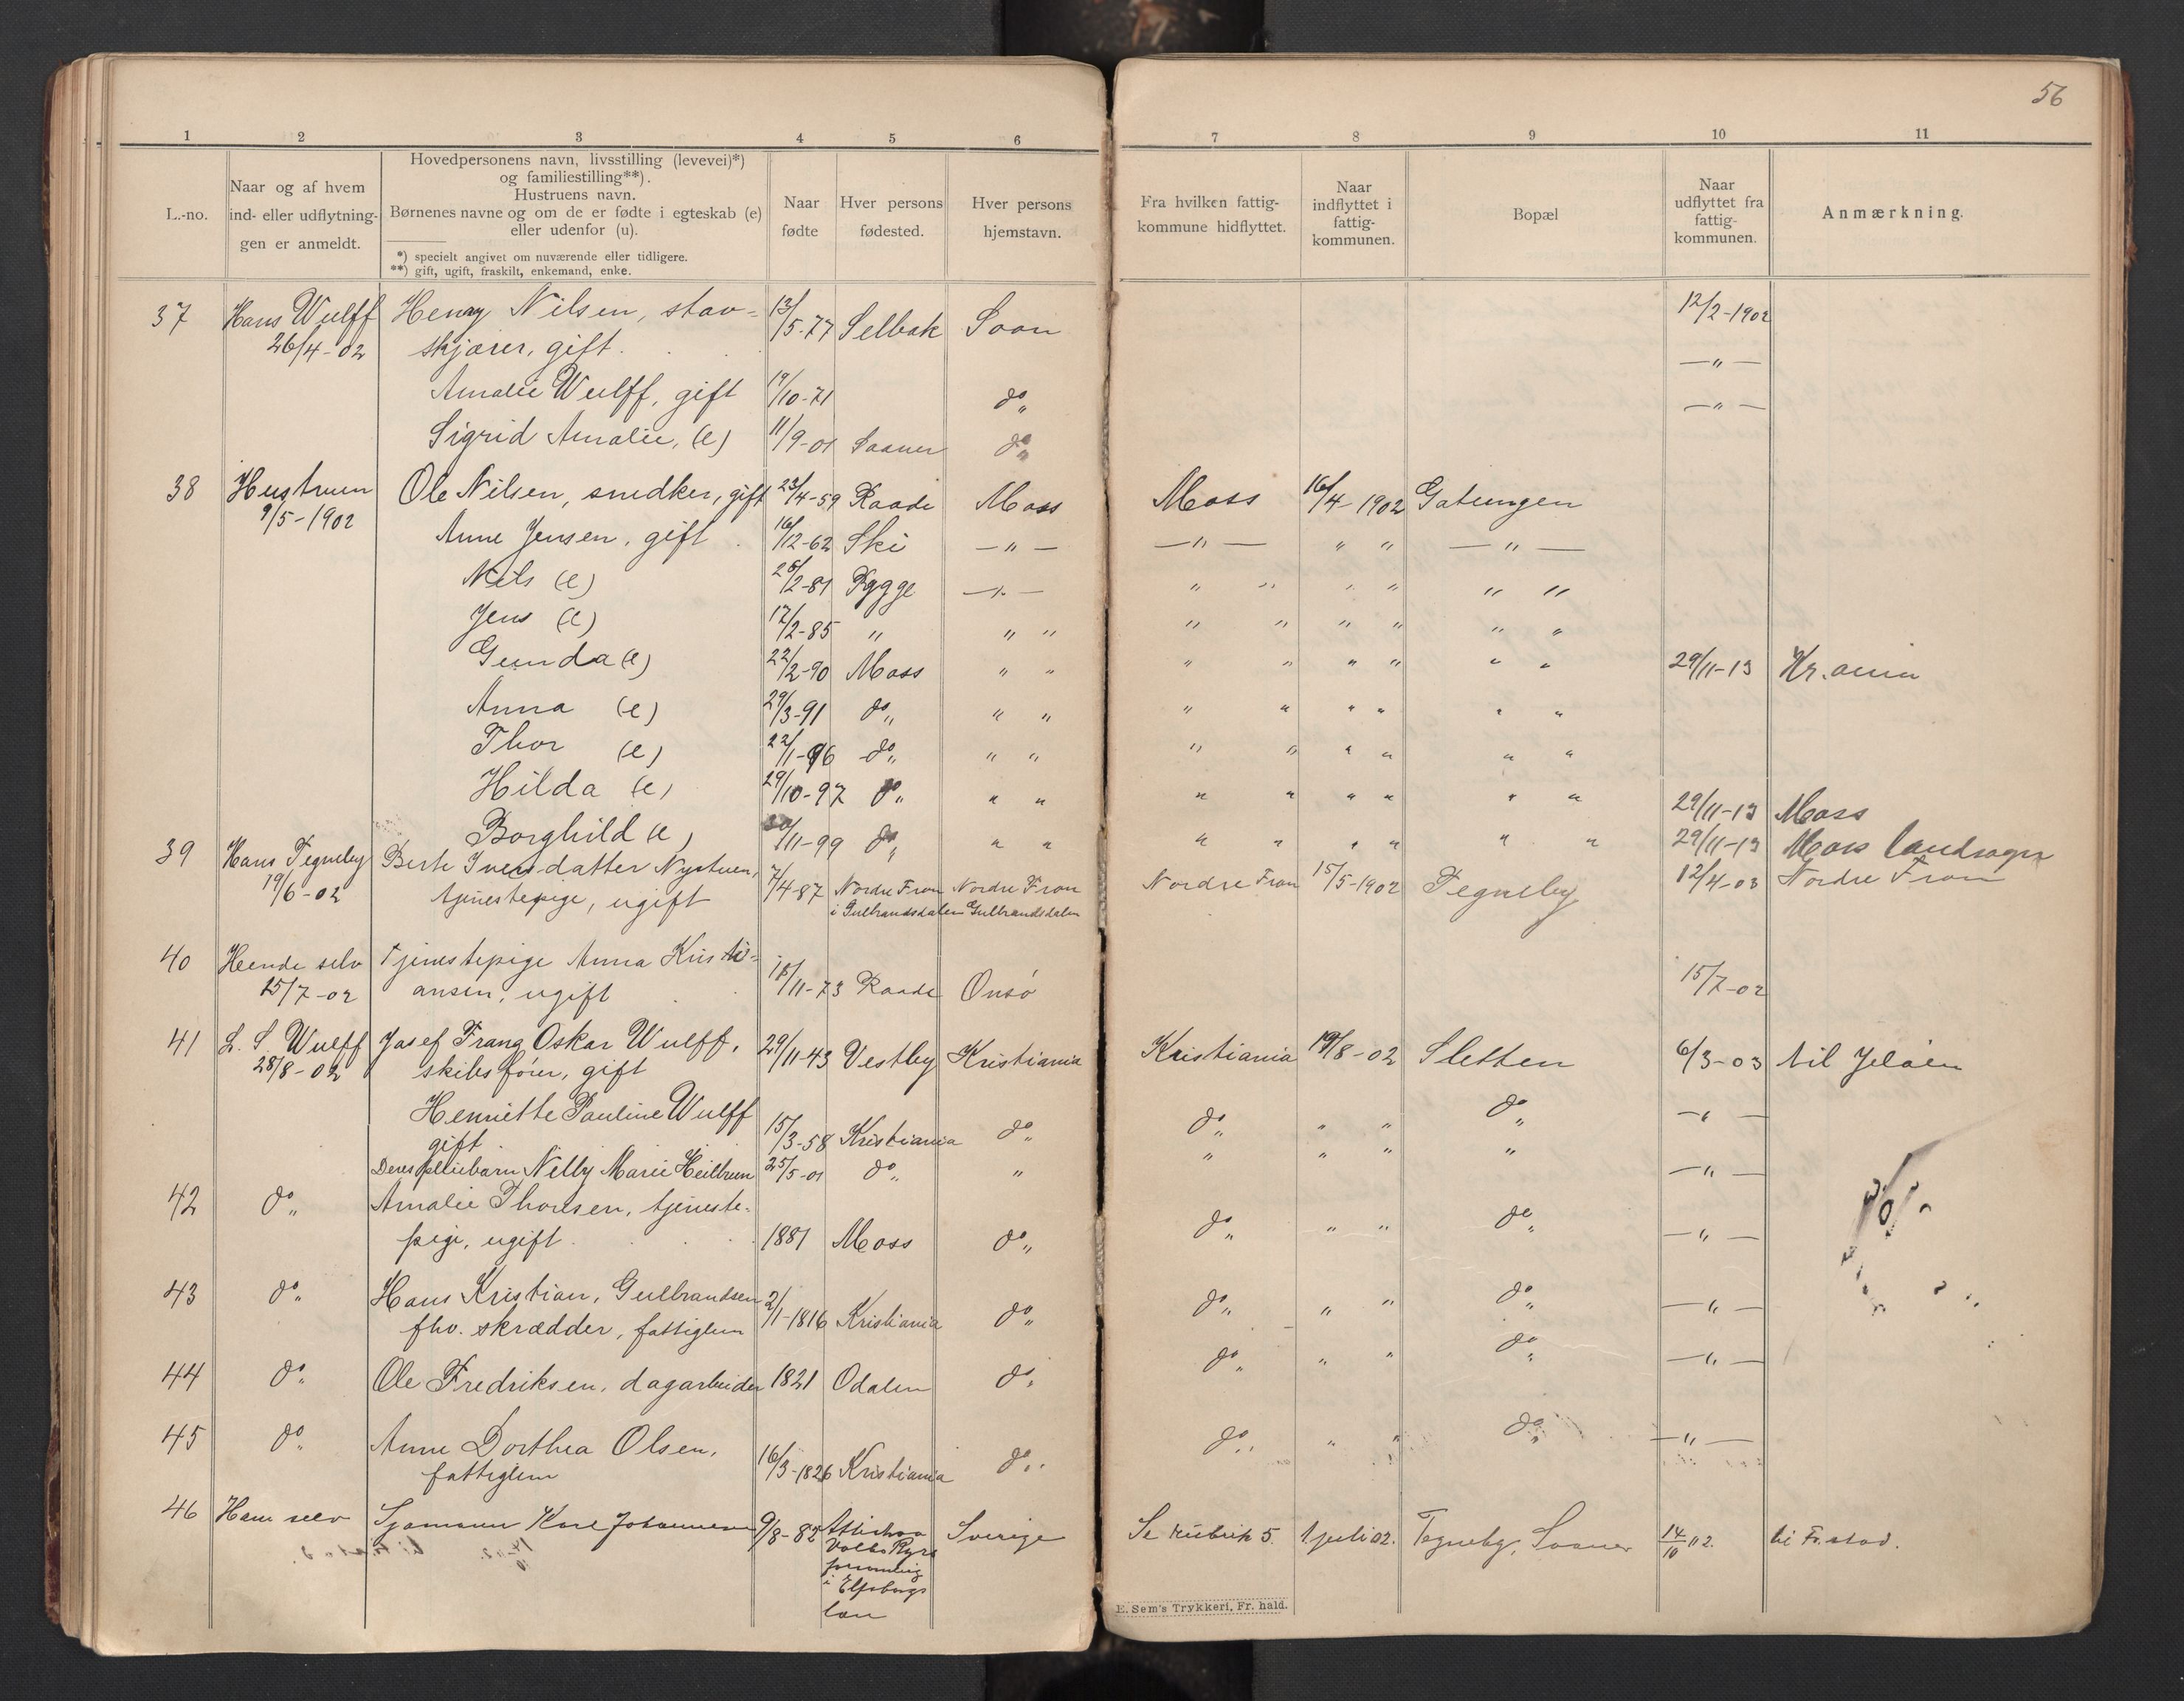 56
1 2 3 4 5 6 7 8 9 10 11
L.-no.
Naar og af hvem
ind- eller udflytnin-
gen er anmeldt.
Hovedpersonens navn, livsstilling (levevei)*)
og familiestilling**).
Hustruens navn.
Børnenes navne og om de er fødte i egteskab (e)
eller udenfor (u).
*) specielt angivet om nuværende eller tidligere.
**) gift, ugift, fraskilt, enkemand, enke.
Naar
fødte
Hver persons
fødested.
Hver persons
hjemstavn.
Fra hvilken fattig-
kommune hidflyttet.
Naar
indflyttet i
fattig-
kommunen.
Bopæl
Naar
udflyttet fra
fattig-
kommunen.
Anmærkning.
37 Hans Wulff Henry Nilsen, stav- 13/5-77 Selbak Soon 12/2-1902
26/4-02 skjærer, gift. —"—
Amalie Wulff, gift 19/10-71 do„ —"—
Sigrid Amalie, (e) 11/9-01 Saaner do„
38 Hustruen Ole Nilsen, snedker, gift 23/4-59 Raade Moss Moss 16/4-1902 Gatungen
9/5-1902 Anne Jensen, gift 16/12-62 Ski —"— —"— " " —"—
Nils (e) 26/2-81 Rygge —"— " " " " " "
Jens (e) 17/2-85 " " " " " " " " "
Gunda (e) 22/2-90 Moss " " " " " " " " 29/11-13 Kr.ania
Anna (e) 29/3-91 do„ " " " " " " " "
Thor (e) 22/1-96 do„ " " " " " " " "
Hilda (e) 29/10-97 do„ " " " " " " " " 29/11-13 Moss
Borghild (e) /11-99 do„ " " " " " " " " 29/11-13 Moss landsogn
39 Hans Tegneby Berte Iversdatter Nystuen, 7/4-87 Nordre Fron Nordre Fron Nordre Fron 15/5-1902 Tegneby 12/4-03 Nordre Fron
19/6-02 tjenestepige, ugift i Gulbrandsdalen Gulbrandsdalen
40 Hende selv Tjenestepige Anna Kristi- 15/7-02
15/7-02 ansen, ugift 18/11-73 Raade Onsø
41 L. S. Wulff Josef Frang Oskar Wulff, 29/11-43 Vestby Kristiania Kristiania 19/8-02 Sletten 6/3-03 til Jeløen
28/8-02 skibsfører, gift
Henriette Pauline Wulff 15/3-58 Kristiania do„ do„ " " do„ —"—
gift
Deres pleiebarn Nelly Marie Heilbrun 25/5-01 do„ " " " " " —"—
42 do„ Amalie Thoresen, tjeneste-
pige, ugift 1881 Moss do„ do„ " " do„ —"—
43 do„ Hans Kristian, Gulbrandsen 2/1-1816 Kristiania do„ do„ " " do„ —"—
fhv. skrædder, fattiglem
44 do„ Ole Fredriksen, dagarbeider 1821 Odalen do„ do„ " " do„ —"—
45 do„ Anne Dorthea Olsen, 16/3-1826 Kristiania do„ do„ " " do„ —"—
fattiglem
46 Ham selv Sjømann Karl Johannesen 9/8-82 Sverige Se rubrik 5. 1 juli 02. Tegneby, Soaner 14/10 02. til Fr.stad.
Valbo Ryrs
forsamling
i Elfsborgs
län
E. Sem's Trykkeri, Fr. hald.